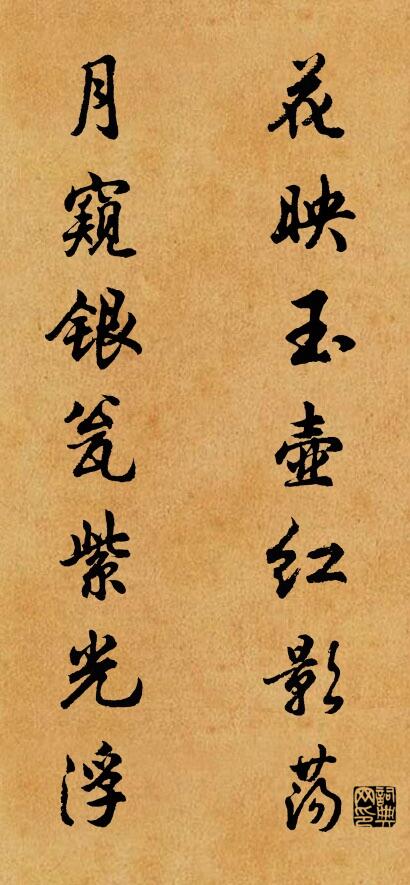 花映玉壶红影荡
月窥银瓮紫光浮
詞典网印